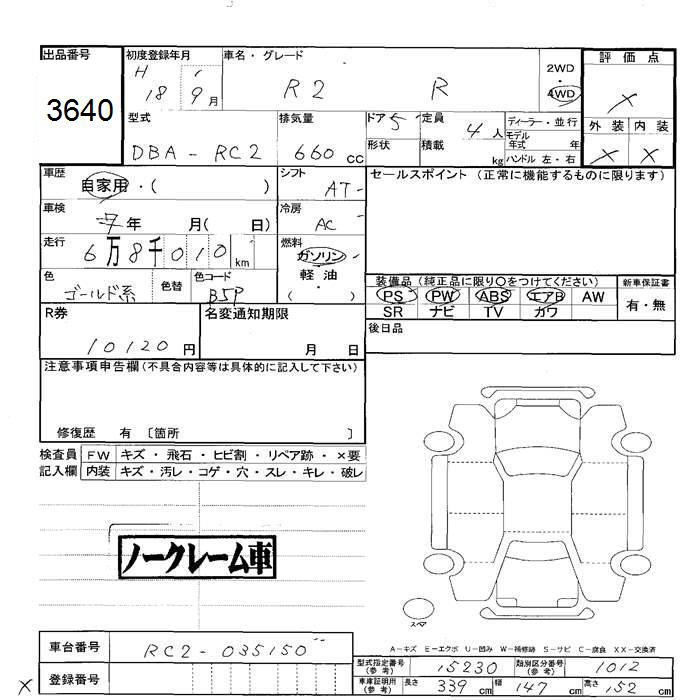 出品番号 初度登録年月 車名・グレード 評価点
3640 H 18 9月 R2 R 2WD・4WD ×
型式 排気量 ドア 5 定員 4人 ディーラー・並行 外装 内装
DBA-RC2 660cc 形状 積載 kg モデル年式 年 ハンドル 左・右 × ×
車歴 シフト セールスポイント (正常に機能するものに限ります)
自家用・( ) AT
車検 冷房
年 月( 日) AC
走行 燃料
6万8千010km ガソリン
軽油
( ・ )
色 色替 色コード
ゴールド系 B5P
装備品(純正品に限り〇をつけてください) 新車保証書
PS PW ABS エアB AW 有・無
SR ナビ TV カワ
R券 名変通知期限 後日品
10120円 月 日
注意事項申告欄(不具合内容等は具体的に記入して下さい)
修復歴 有 〔箇所 〕
検査員 FW キズ・飛石・ヒビ割・リペア跡・×要
記入欄 内装 キズ・汚レ・コゲ・穴・スレ・キレ・破レ
ノークレーム車
スペア
A-キズ E-エクボ U-凹み W-補修跡 S-サビ C-腐食 XX-交換済
車台番号 RC2-035150
型式指定番号(参考) 15230 類別区分番号(参考) 1012
× 登録番号
車庫証明用(参考) 長さ 339cm 幅 147cm 高さ 152cm